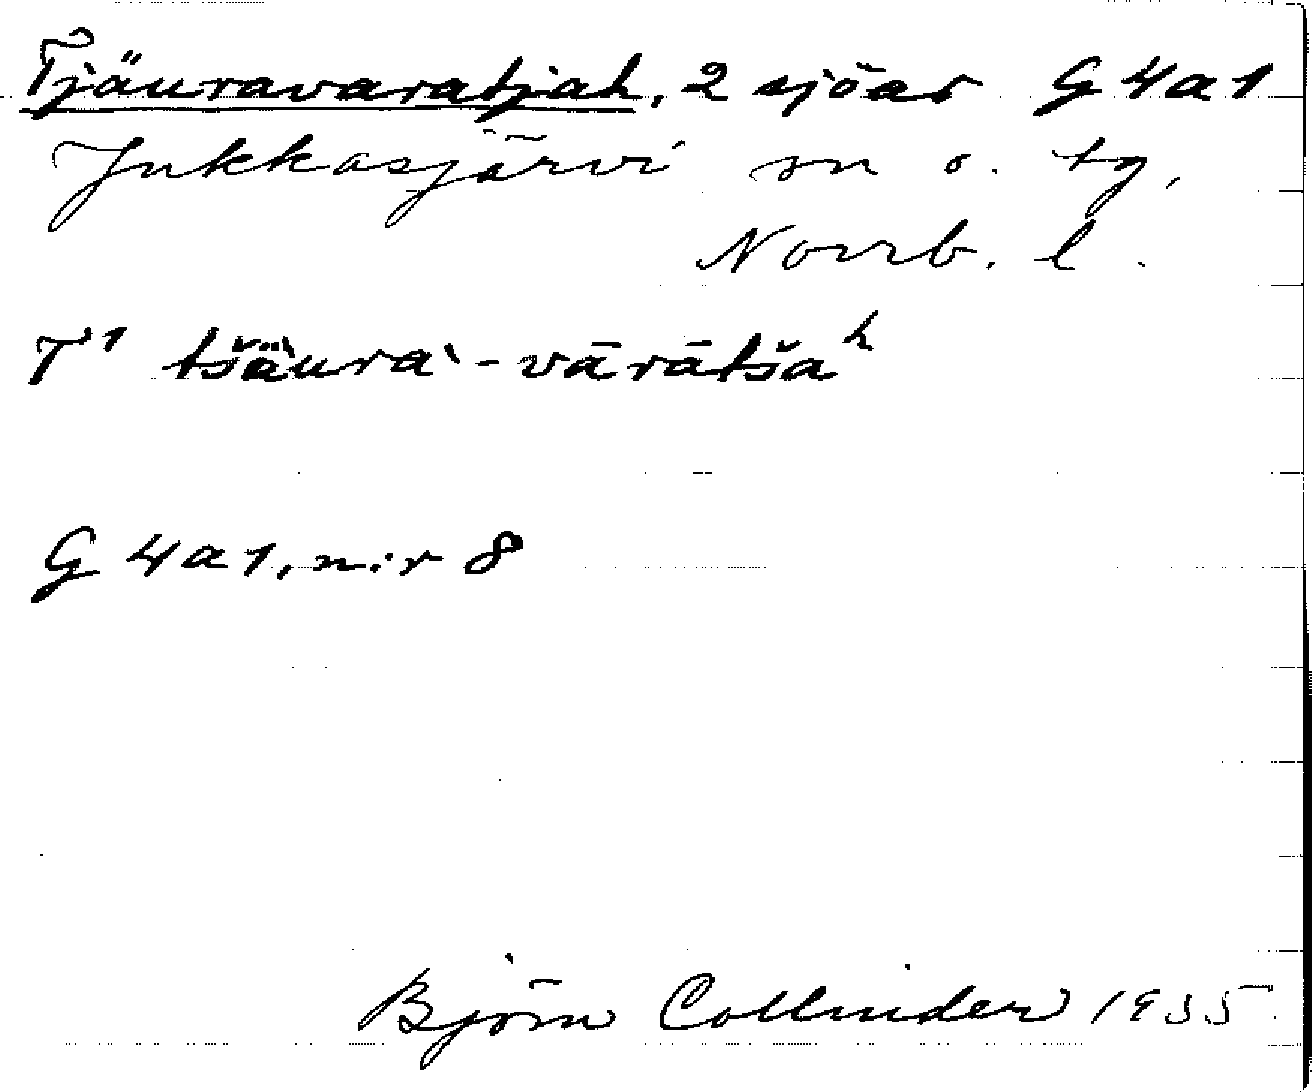 Tjäuravaratjah, 2 sjöar G 4a1
Jukkasjärvi sn o. tg,
Norrb. l.
T1 tšäura`-vārātšaʰ
G 4a1, n:r 8
Björn Collinder 1935